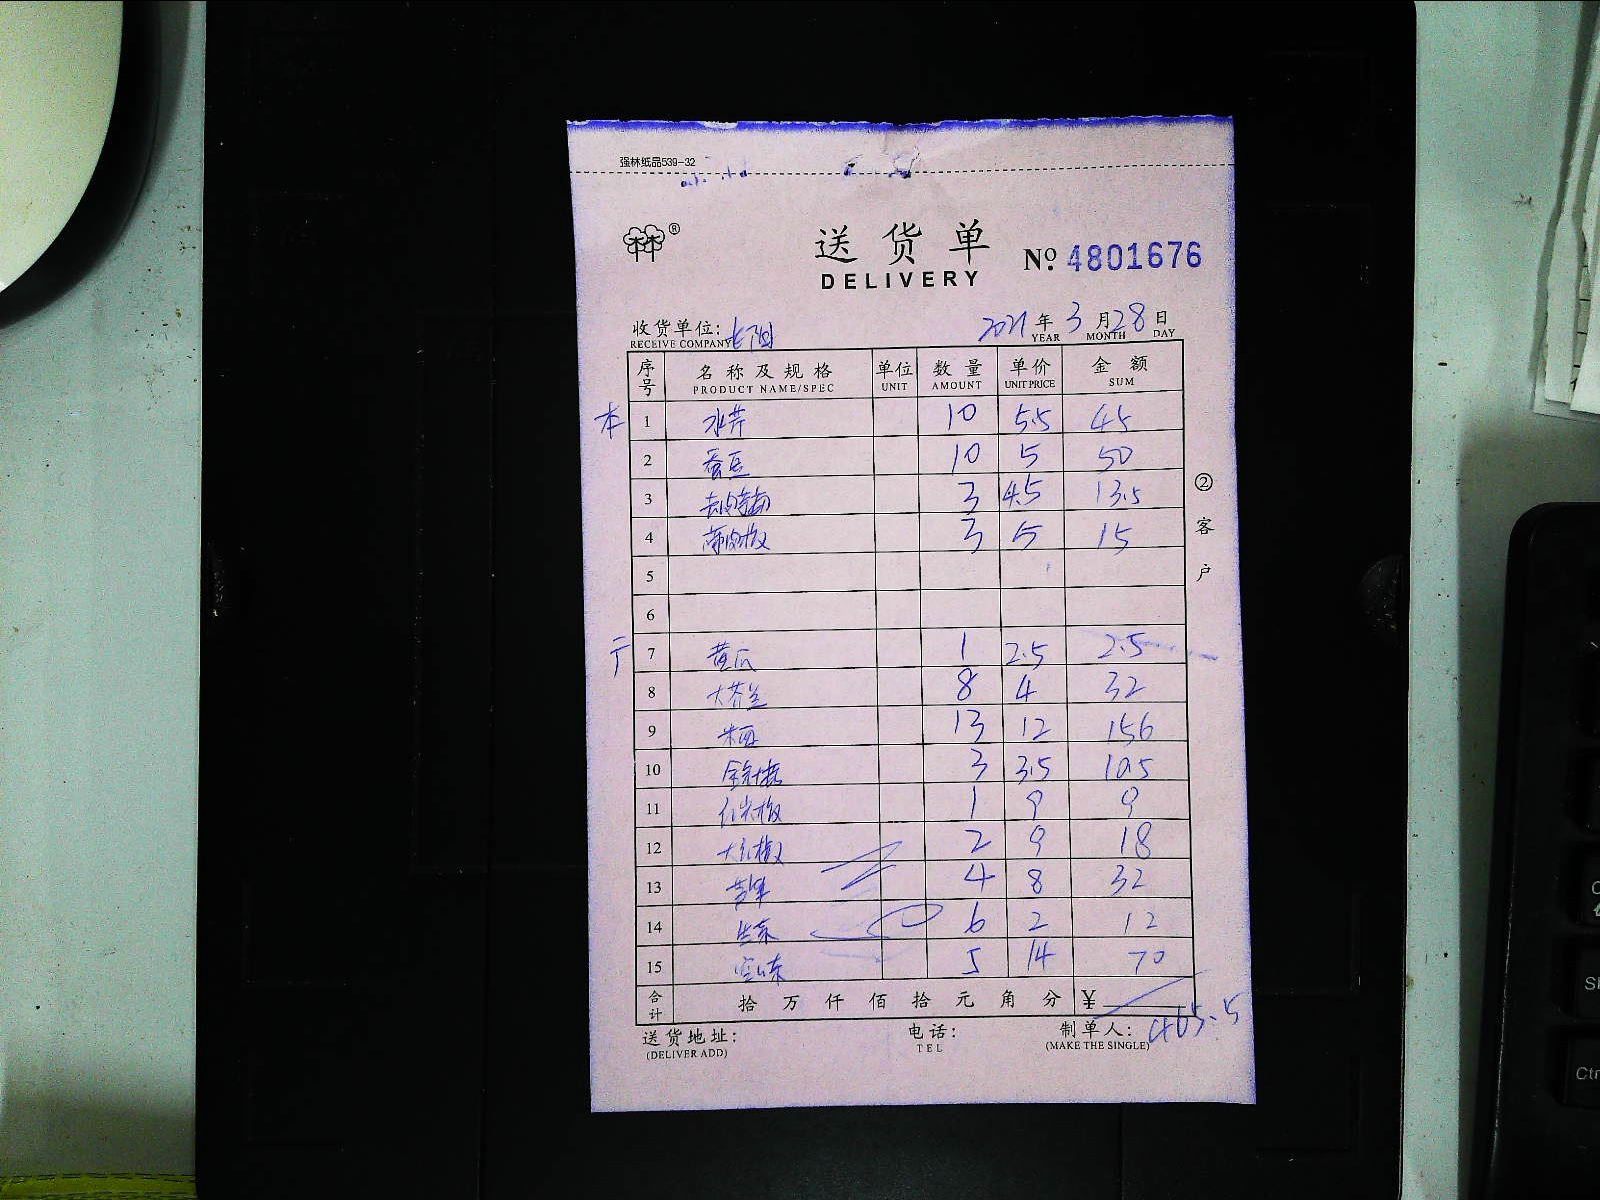 强林纸品539-32
® 送货单 No. 4801676
DELIVERY
收货单位: 2021年3月28日
RECEIVE COMPANY YEAR MONTH DAY
序号 名称及规格 单位 数量 单价 金额
PRODUCT NAME/SPEC UNIT AMOUNT UNIT PRICE SUM
本 1 水芹 10 5.5 45
2 蚕豆 10 5 50
3 3 4.5 13.5
4 3 5 15
5
6
7 黄瓜 1 2.5 2.5
8 大芥兰 8 4 32
9 13 12 156
10 金针菇 3 3.5 10.5
11 红米椒 1 9 9
12 大红椒 2 9 18
13 4 8 32
14 生菜 6 2 12
15 5 14 70
合计 拾万仟佰拾元角分 ¥
465.5
送货地址: 电话: 制单人:
(DELIVER ADD) TEL (MAKE THE SINGLE)
②客户